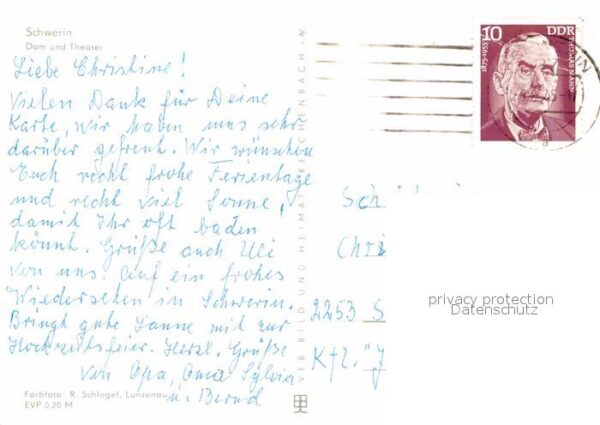 Schwerin
Dom und Theater
Liebe Christine!
Vielen Dank für Deine
Karte, wir haben uns sehr
darüber gefreut. Wir wünschen
Euch recht frohe Ferientage
und recht viel Sonne,
damit Ihr oft baden
könnt. Grüße auch Uli
von uns. Auf ein frohes
Wiedersehen in Schwerin.
Bringt gute Laune mit zur
Hochzeitsfeier. Herzl. Grüße
von Opa, Oma Sylvia
u. Bernd
Farbfoto: R. Schlegel, Lunzenau
EVP 0,20 M
VEB BILD UND HEIMAT REICHENBACH I.V.
10 DDR
1875-1955
THOMAS MANN
Sch
Chri
2253 S
Kfl. "J
privacy protection
Datenschutz